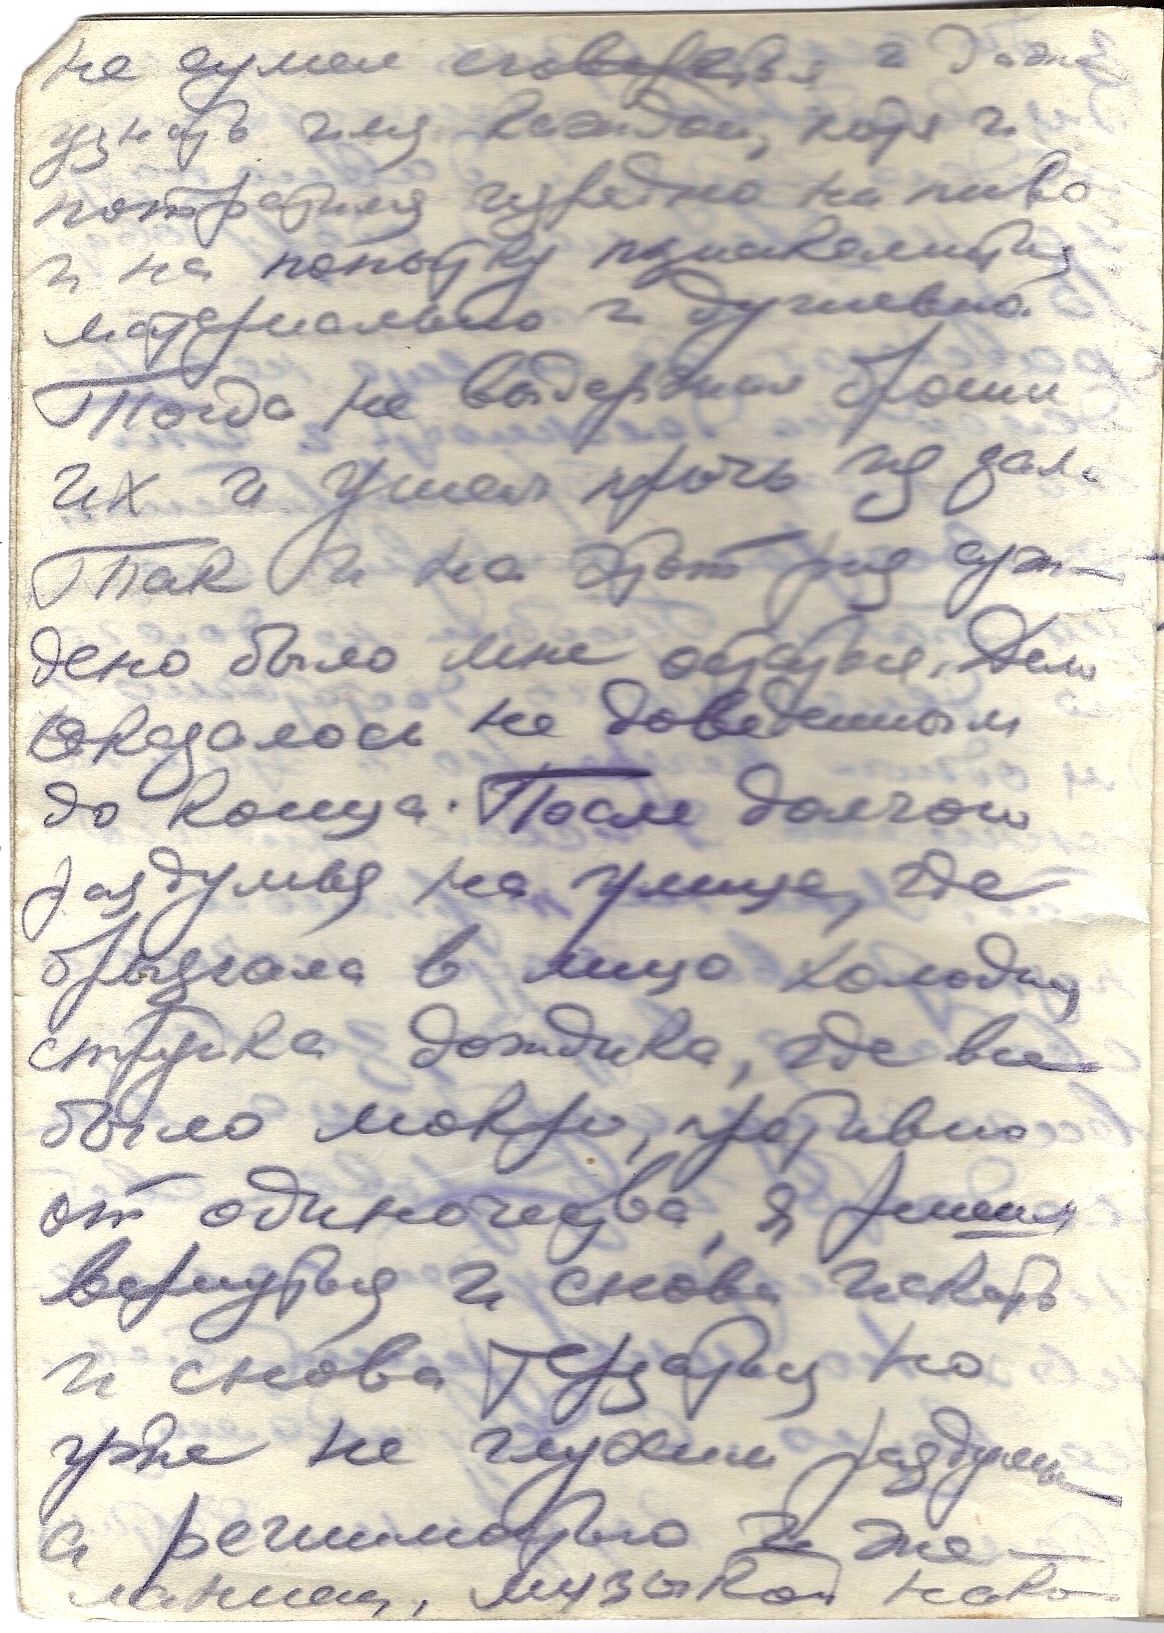 не сумел и даже
узнать имя каждой, хотя и
потратился изрядно на пиво
и на попытку познакомиться
материально и душевно.
Тогда не выдержал бросил
их и ушел прочь из зала
Так и на этот раз суж-
дено было мне остаться. Дело
оказалось не доведенным
до конца. После долгого
раздумья на улице, где
брызгала в лицо холодная
струйка дождика, где все
было мокро, противно
от одиночества, я решил
вернуться и снова искать
и снова терзаться но
уже не глухим раздумьем
а решимостью и же-
ланием, музыкой како-